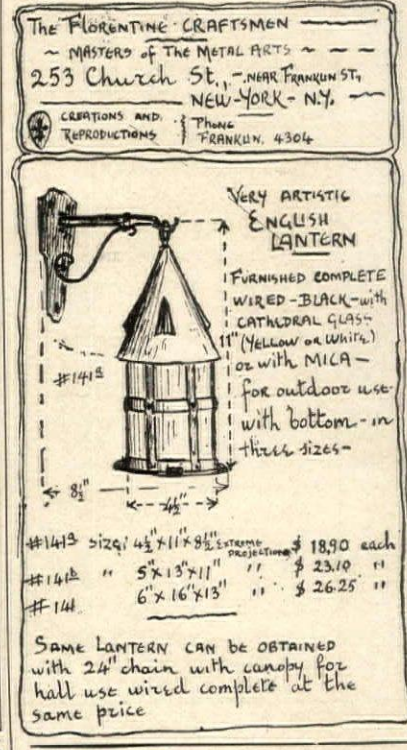 The Florentine Craftsmen
Masters of The Metal Arts
253 Church St., - Near Franklin St,
New-York - N.Y.
Creations and
Reproductions
Phone
Franklin. 4304
Very Artistic
English
Lantern
Furnished complete
wired - Black - with
Cathedral Glass
(Yellow or White)
or with Mica -
for outdoor use -
with bottom - in
three sizes -
11"
#141a
8½"
4½"
#141a size: 4½"x11"x8½" Extreme Projection $ 18.90 each
#141b " 5"x13"x11" " $ 23.10 "
#141 6"x16"x13" " $ 26.25 "
Same Lantern can be obtained
with 24" chain with canopy for
hall use wired complete at the
same price